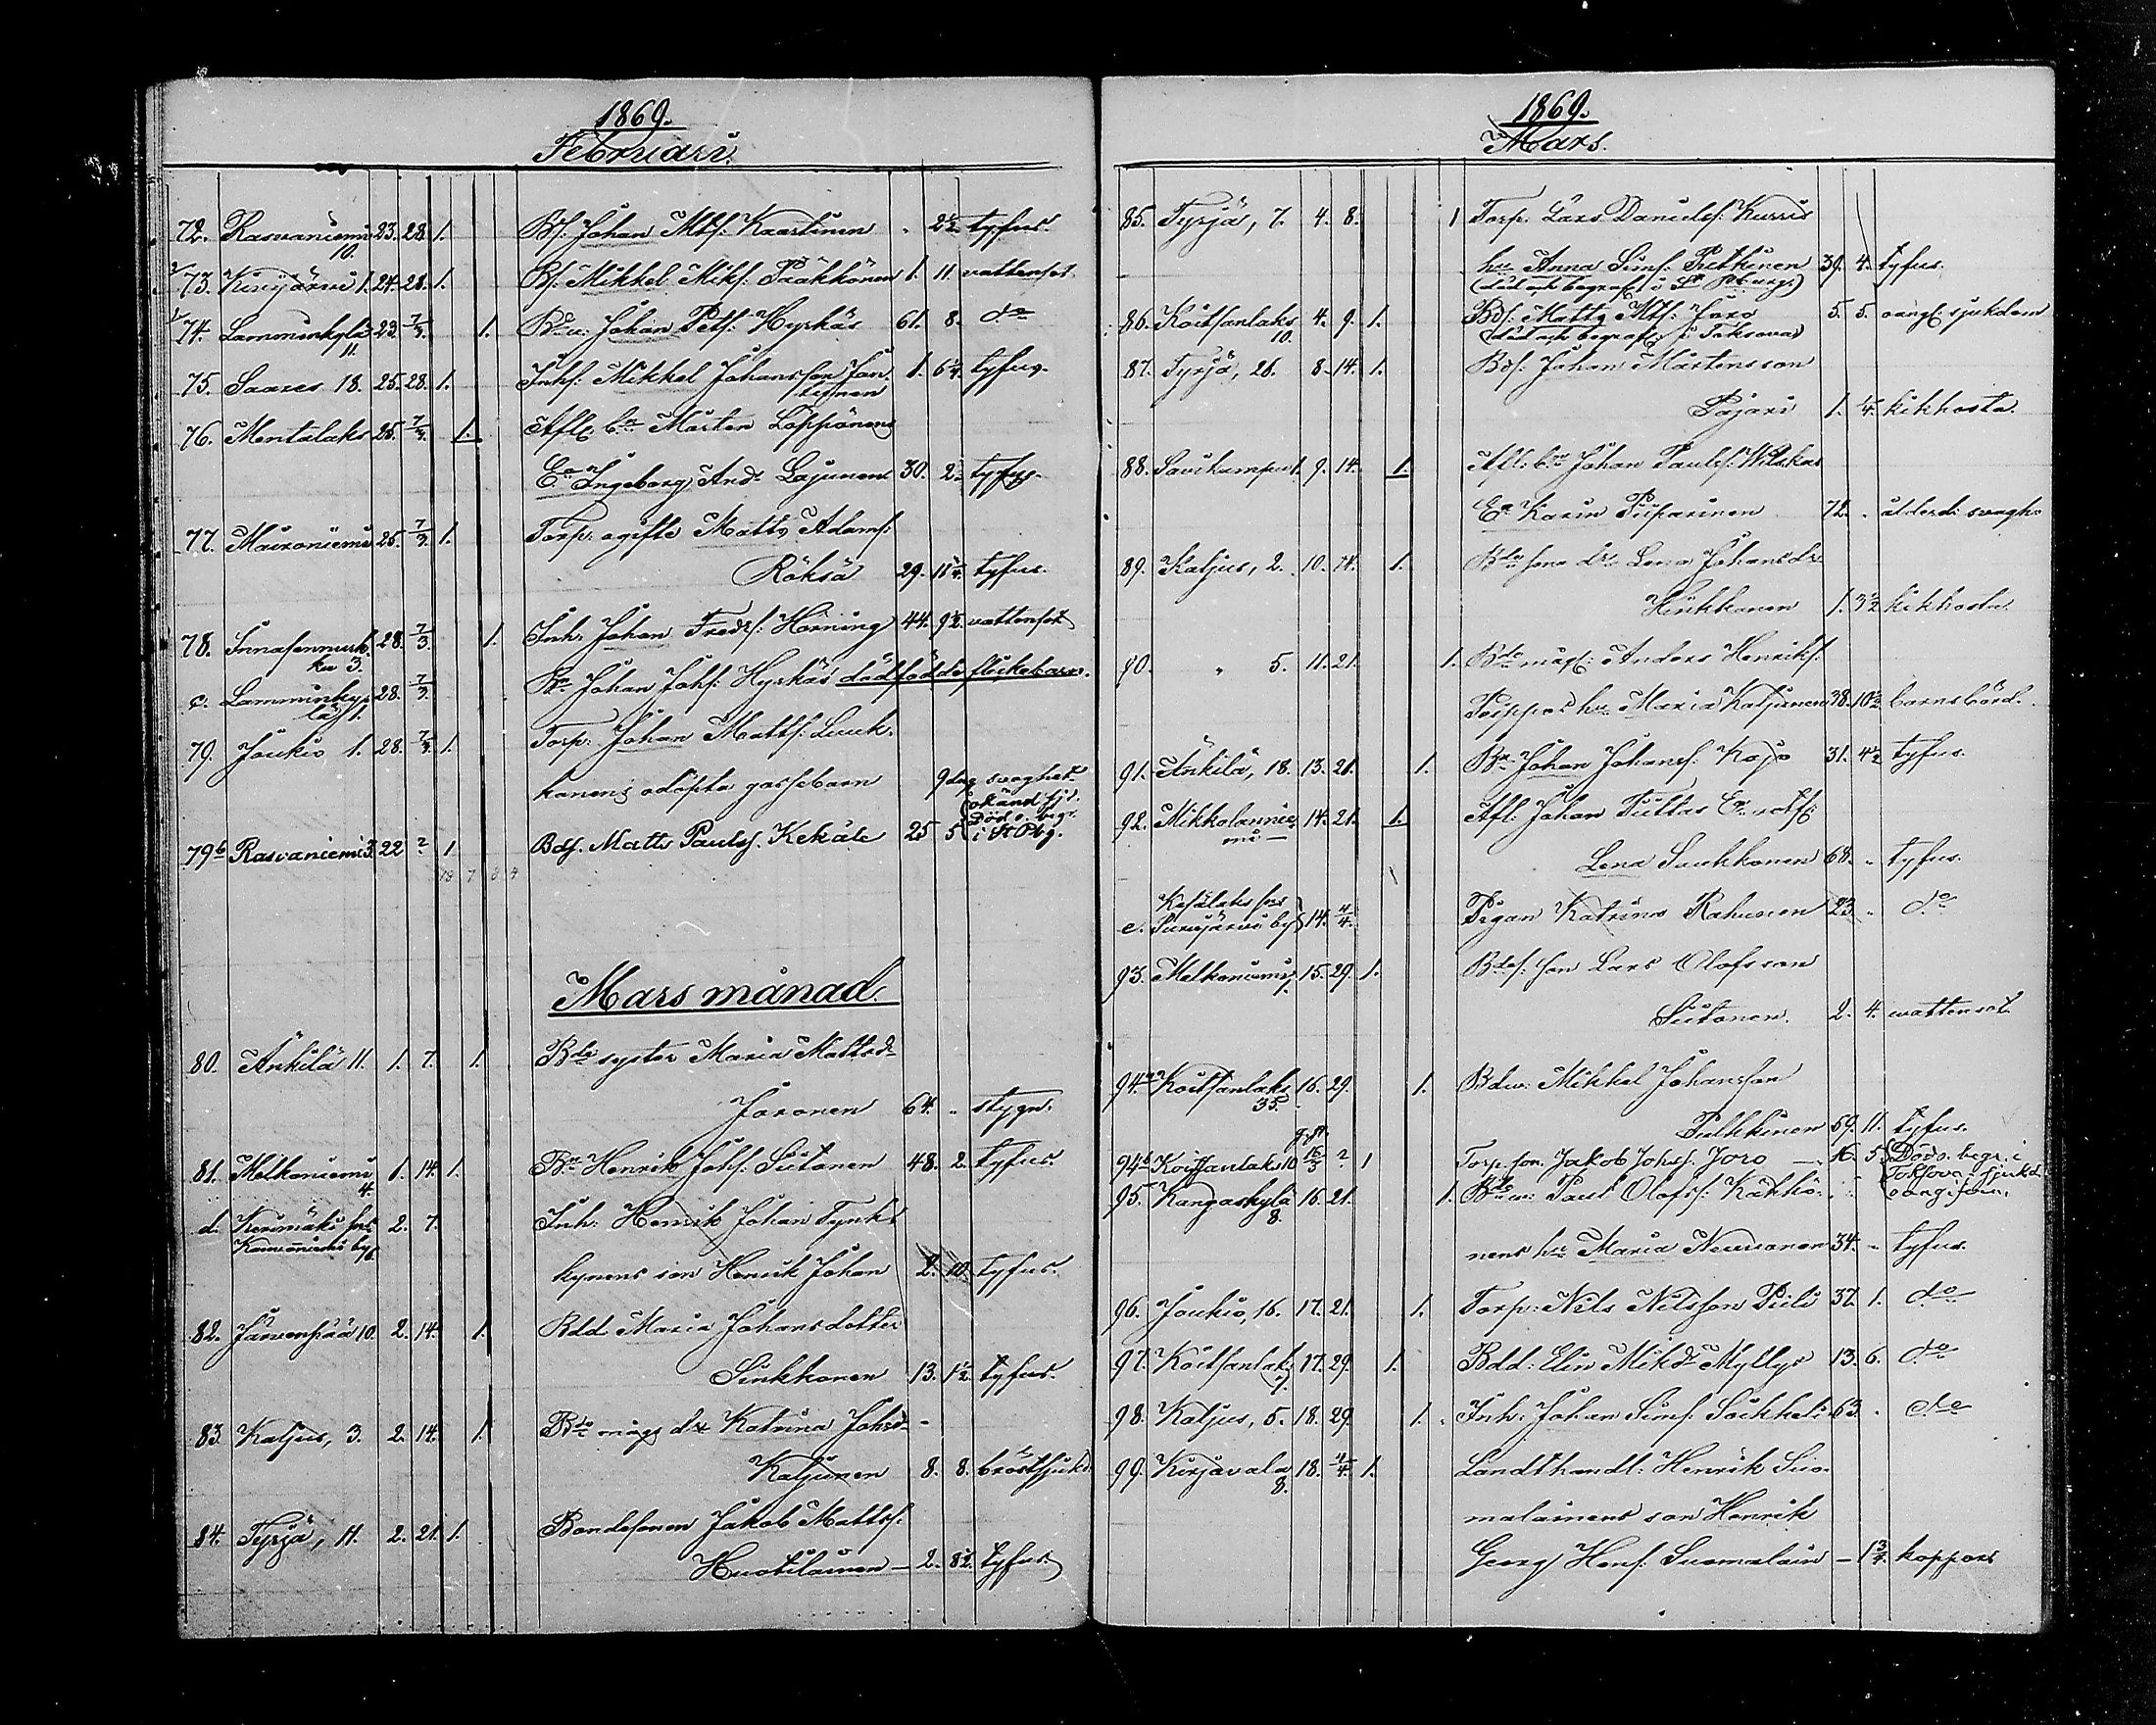 1869.
Februari.
72. Rasvaniemi 23. 28. 1. Bs. Johan Mts. Kaartinen " 2½ tyfus.
10.
73. Kirjärvi 1. 24. 28. 1. Bs. Mikkel Miks. Pääkkönen 1. 11. vattensot.
74. Lamminkylä 23. 7/3. 1. Bdw: Johan Pets. Hyrkäs 61. 8. do
11.
75. Saares 18. 25. 28. 1. Inhs. Mikkel Johansson 1. 6¼. tyfus.
76. Mentälaks 25. 7/3. 1. Afl. Mårten Läppönens
Ea Ingeborg And. Lajunen 30. 2. tyfus.
77. Maironiemi 25. 7/3. 1. Torp. ogifte Matts Adams.
Röksä 29. 11¼. tyfus.
78. 28. 7/3 1. Inh. Johan Fredrs. Horning 44. 9½. vattensot
3.
c. Lamminky- 28. 7/3. Bn Johan Johs. Hyrkäs dödfödde flickebarn.
lä, 1.
79. Joukio 1. 28. 7/3. 1. Torp. Johan Matts. Luuk-
kanens odöpta gossebarn 9 dag svaghet
79b Rasvaniemi 3. 22 ? 1 Bds. Matts Pauls. Kekäle 25 5 okänd sjd. Död o. begr. i St Pbg.
19 7 3 4
Mars månad.
80. Änkilä 11. 1. 7. 1. Bde syster Maria Mattsdr
Jaronen 64. " stygn.
81. Melkoniemi 1. 14. 1. Bn Henrik Johs. Sutonen 48. 2. tyfus.
4.
d. Kerimäki 2. 7. Inh. Henrik Johan Tynk-
kynens son Henrik Johan 2. 10. tyfus.
82. Järvenpää 10. 2. 14. 1. Bdd Maria Johansdotter
Sinkkonen 13. 1½. tyfus.
83. Kaljus, 3. 2. 14. 1. Bde mågs dr Katrina Johsdr
Kaljunen 8. 8. bröstsjukd.
84. Tyrjä, 11. 2. 21. 1. Bondesonen Jakob Matts.
Huotilainen — 2. 8½. tyfus
1869.
Mars.
85. Tyrjä, 7. 4. 8. 1 Torp. Lars Daniels. Kurris
hu Anna Sims. Pulkinen 39. 4. tyfus.
(död och begrafv. i St Pburg.)
86. Koitsanlaks 4. 9. 1. Bds. Matts Mts. Joro 5. 5. oangf. sjukdom
10. (död och begrafv. i Toksova)
87. Tyrjä, 26. 8. 14. 1. Bds. Johan Mårtensson
Pajari 1. ¼. kikhosta.
88. Savikumpu 1. 9. 14. 1. Afl. bn Johan Pauls. Wilskas
Ea Karin Piiparinen 72. " ålderd. svagh.
89. Kaljus, 2. 10. 14. 1. Bde sons dr Lena Johansdr
Hinkkanen 1. 3½ kikhosta.
90. " 5. 11. 21. 1. Bde måg: Anders Henriks.
Poippos hu Maria Kaljunen 38. 10½ barnsbörd.
91. Änkilä, 18. 13. 21. 1. Bn Johan Johans. Kojo 31. 4½ tyfus.
92. Mikkolannie- 14. 21. 1. Afl. Johan Tuttas
mi — Lena Saukkonen 68. " tyfus.
e. Kesälaks Purujärvi by 14. 4/4. Pigan Katrina Rahunen 23. " do
93. Melkoniemi 15. 29. 1. Bdes. son Lars Olofsson
1. Sutonen. 2. 4. wattensot.
94a Koitsanlaks 16. 29. 1. Bdw. Mikkel Johansson
35. Pulkkinen 59. 11. tyfus.
94b Koitsanlaks 10 16/3 ? 1 Torp. son Jakob Johs. Joro — 16. 5 Död o. begr. i Toksova
95. Kangaskylä 16. 21. 1. Bde Paul Olofs. Käkkö-
8. nens hu Maria Neuvonen 34. " tyfus.
96. Joukio, 16. 17. 21. 1. Torp. Nils Nilsson Piili 37. 1. do
97. Koitsanlaks 17. 29. 1. Bdd. Elin Mikdr Myllys 13. 6. do
98. Kaljus, 5. 18. 29. 1. Inh. Johan Sims. Sockkeli 63. " do
99. Kirjavala 18. 4/4 1. Landthandl. Henrik Suo-
8. malainens son Henrik
Georg Hens. Suomalain — 1¾. koppor